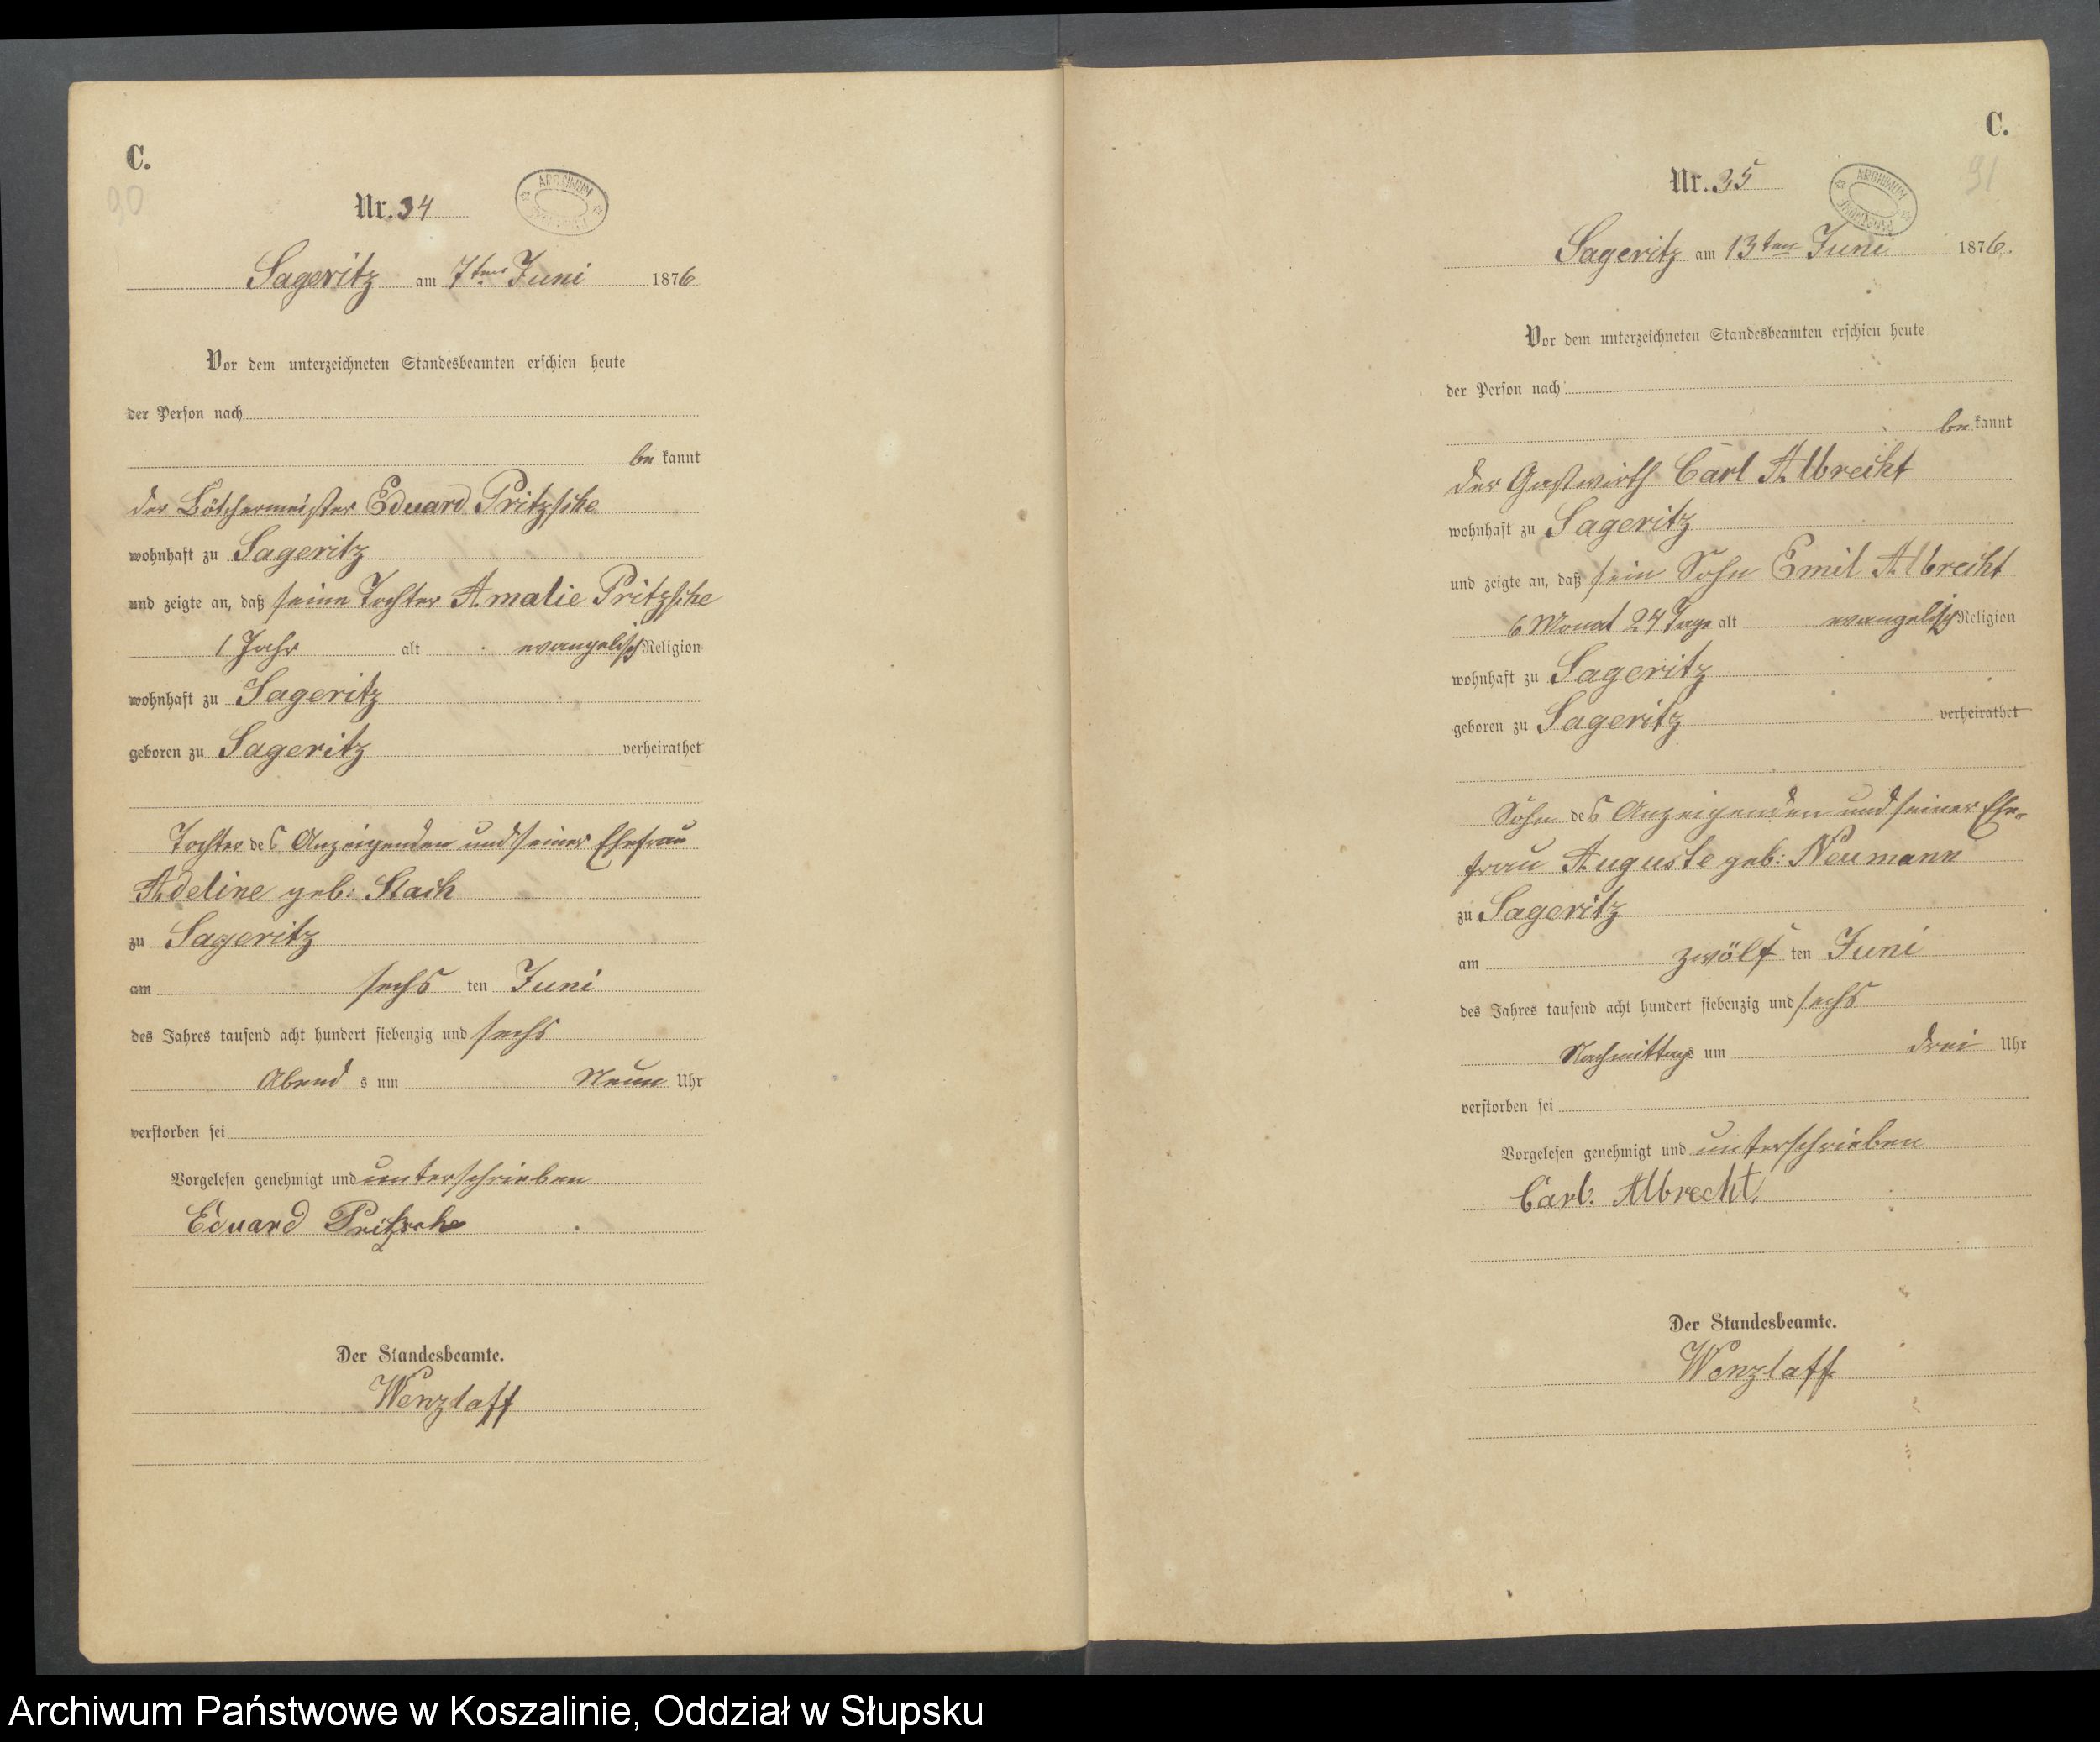 C.
90
Nr. 34
ARCHIWUM
Sageritz am 7ten Juni 1876
Vor dem unterzeichneten Standesbeamten erschien heute
der Person nach
be kannt
der Bötchermeister Eduard Pritzsche
wohnhaft zu Sageritz
und zeigte an, daß seine Tochter Amalie Pritzsche
1 Jahr alt evangelisch Religion
wohnhaft zu Sageritz
geboren zu Sageritz verheirathet
Tochter des Anzeigenden und seiner Ehefrau
Adeline geb: Stach
zu Sageritz
am sechs ten Juni
des Jahres tausend acht hundert siebenzig und sechs
Abend s um Neun Uhr
verstorben sei
Vorgelesen genehmigt und unterschrieben
Eduard Pritzsche
Der Standesbeamte.
Wenzlaff
C.
91
Nr. 35
ARCHIWUM
Sageritz am 13ten Juni 1876.
Vor dem unterzeichneten Standesbeamten erschien heute
der Person nach
be kannt
der Gastwirth Carl Albrecht
wohnhaft zu Sageritz
und zeigte an, daß sein Sohn Emil Albrecht
6 Monat 24 Tage alt evangelisch Religion
wohnhaft zu Sageritz
geboren zu Sageritz verheirathet
Sohn des Anzeigenden und seiner Ehe-
frau Auguste geb: Neumann
zu Sageritz
am zwölf ten Juni
des Jahres tausend acht hundert siebenzig und sechs
Nachmittags um drei Uhr
verstorben sei
Vorgelesen genehmigt und unterschrieben
Carl. Albrecht.
Der Standesbeamte.
Wenzlaff
Archiwum Państwowe w Koszalinie, Oddział w Słupsku